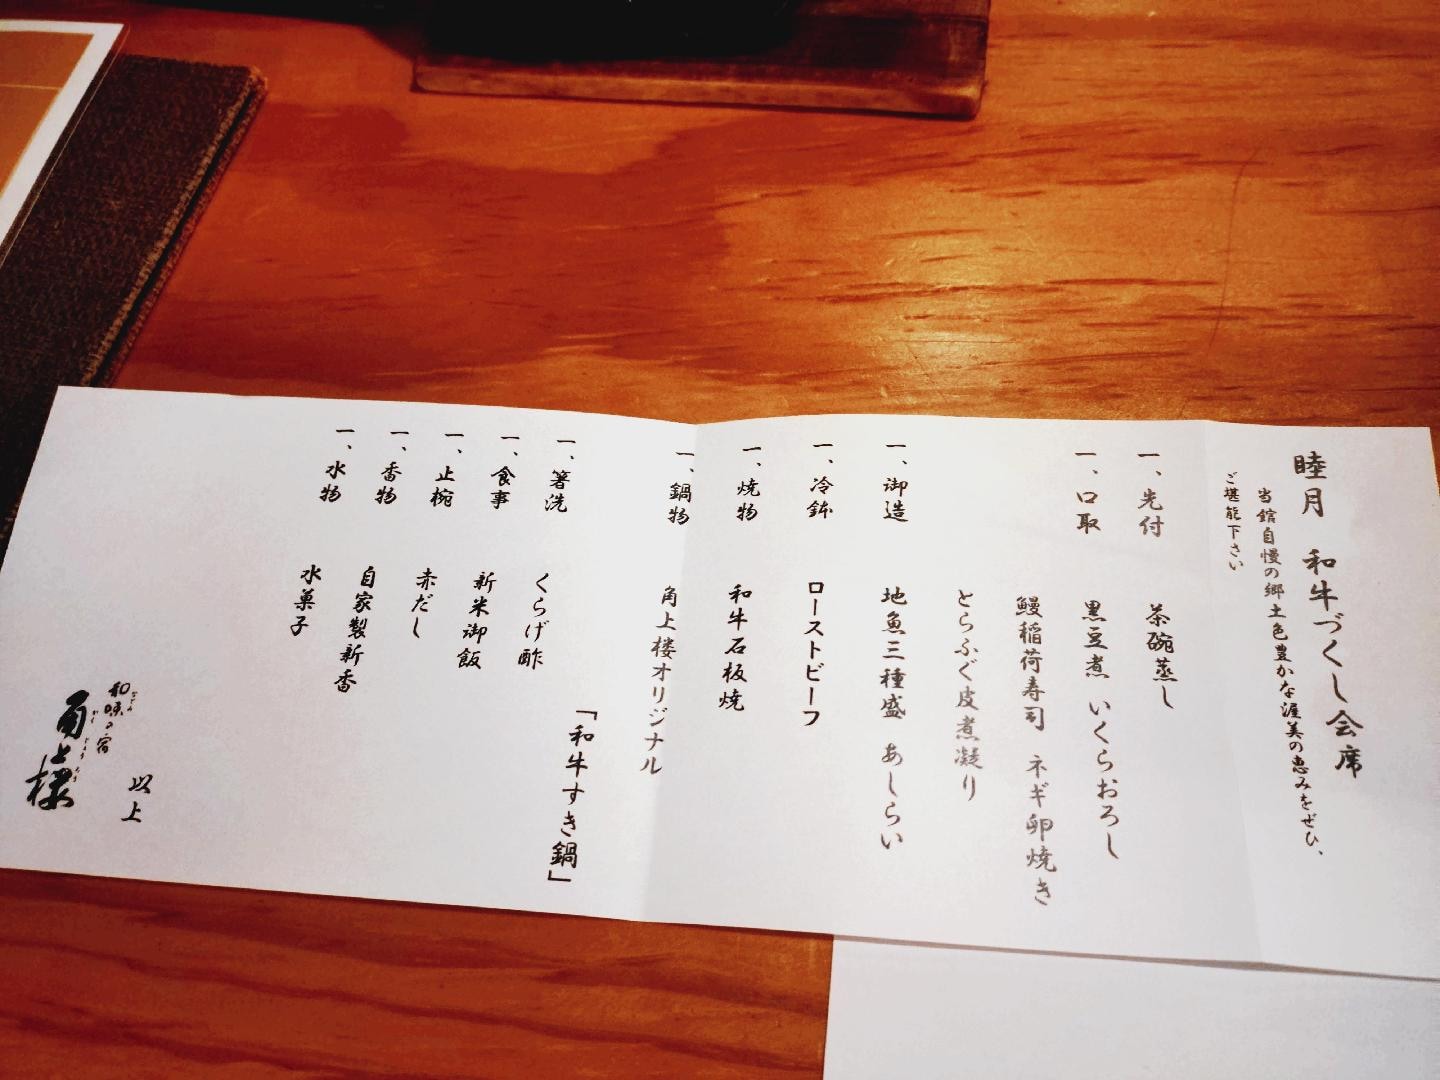 睦月 和牛づくし会席
当館自慢の郷土色豊かな渥美の恵みをぜひ、
ご堪能下さい
一、先付 茶碗蒸し
一、口取 黒豆煮 いくらおろし
鰻稲荷寿司 ネギ卵焼き
とらふぐ皮煮凝り
一、御造 地魚三種盛 あしらい
一、冷鉢 ローストビーフ
一、焼物 和牛石板焼
一、鍋物 角上楼オリジナル
「和牛すき鍋」
一、箸洗 くらげ酢
一、食事 新米御飯
一、止椀 赤だし
一、香物 自家製新香
一、水物 水菓子
以上
和味の宿
角上楼